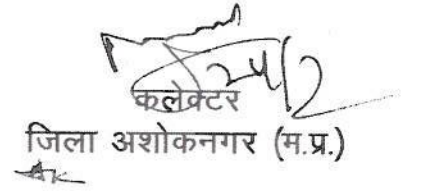 24/2
कलेक्टर
जिला अशोकनगर (म.प्र.)